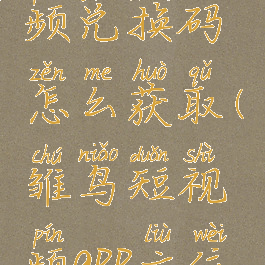 频兑换码
zěn me huò qǔ
怎么获取(
chú niǎo duǎn shì
雏鸟短视
pín liù wèi
频app六位